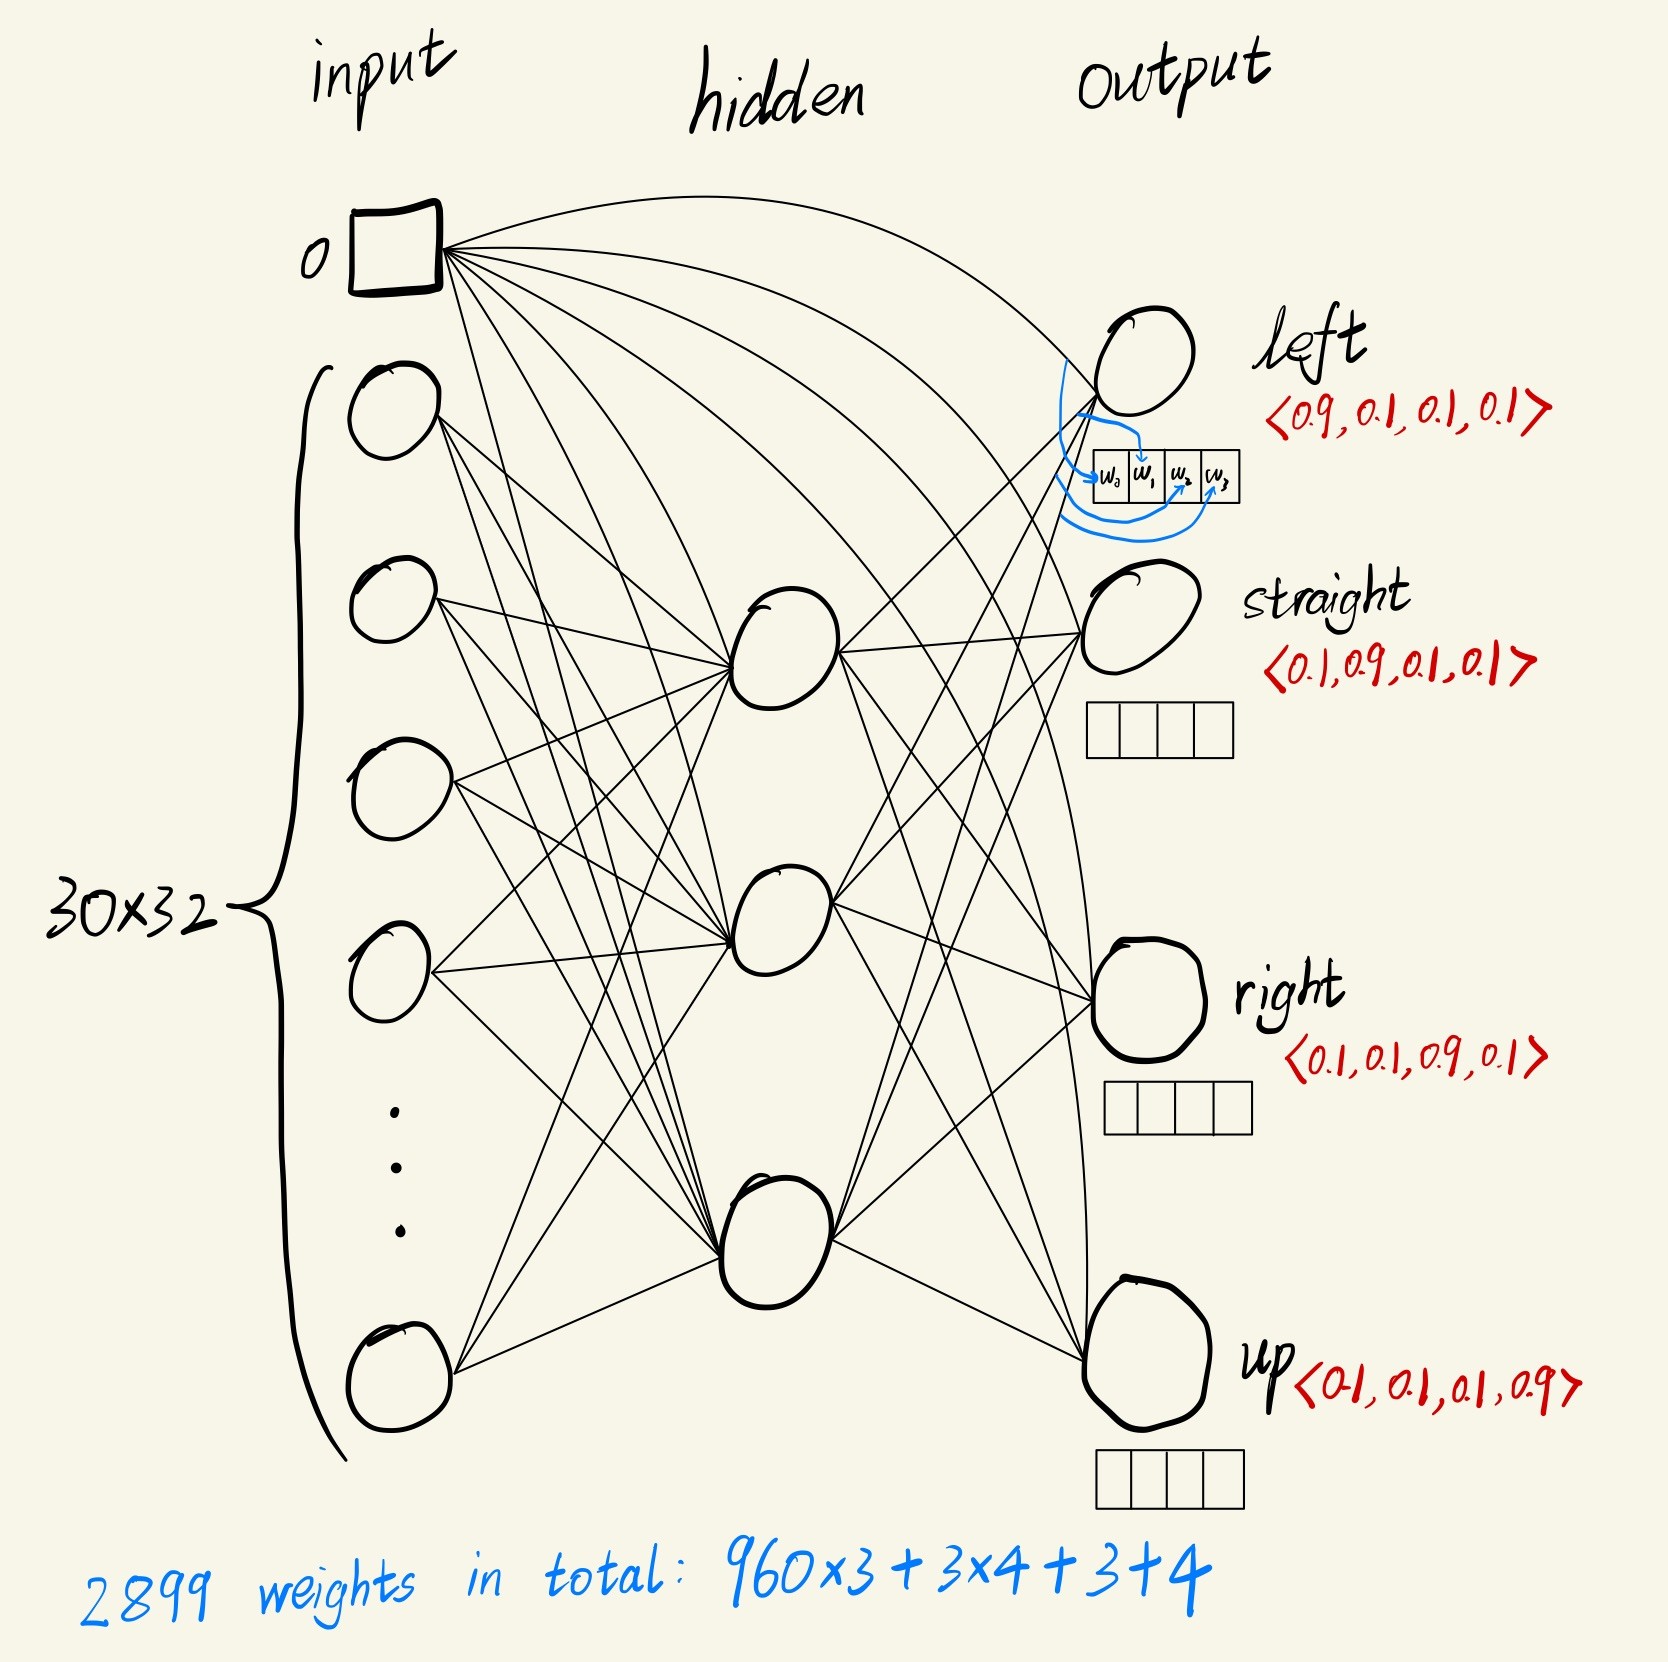 input hidden output
0
left
<0.9, 0.1, 0.1, 0.1>
w₀ w₁ w₂ w₃
straight
<0.1, 0.9, 0.1, 0.1>
30×32
right
<0.1, 0.1, 0.9, 0.1>
up <0.1, 0.1, 0.1, 0.9>
2899 weights in total: 960×3 + 3×4 + 3 + 4